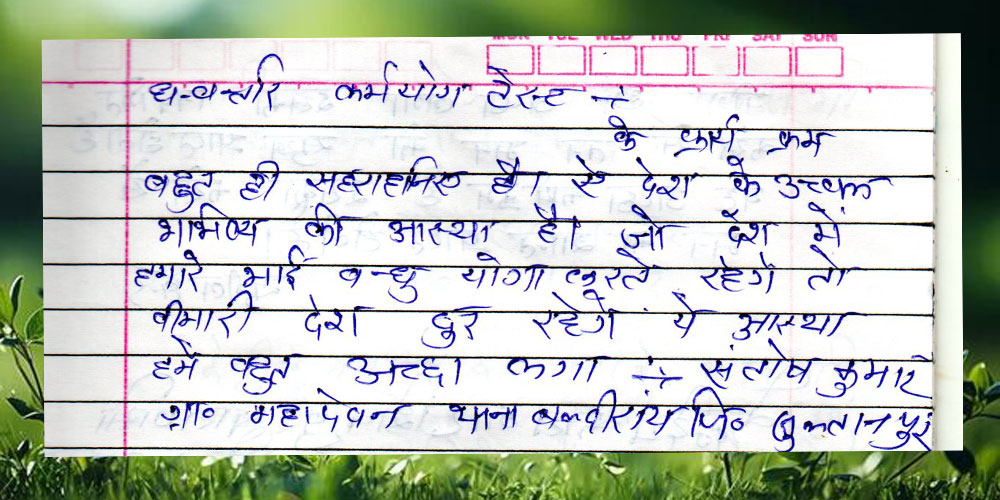 MON TUE WED THU FRI SAT SUN
धन्वन्तरि कर्मयोग टेस्ट ÷
के कार्य क्रम
बहुत ही है। ये देश के
भाभिष्य की आस्था है। जो देश में
हमारे भाई बन्धु योगा करते रहेगें तो
बीमारी देश दुर रहेगी ये आस्था
हमें बहुत अच्छा लगा ÷ संतोष कुमार
ग्रा० महादेवन थाना बल्दीराय जि० सुल्तानपुर